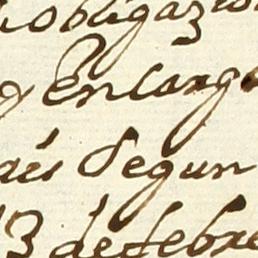 obligazion
y Encarg
aes Segun
13 de febre